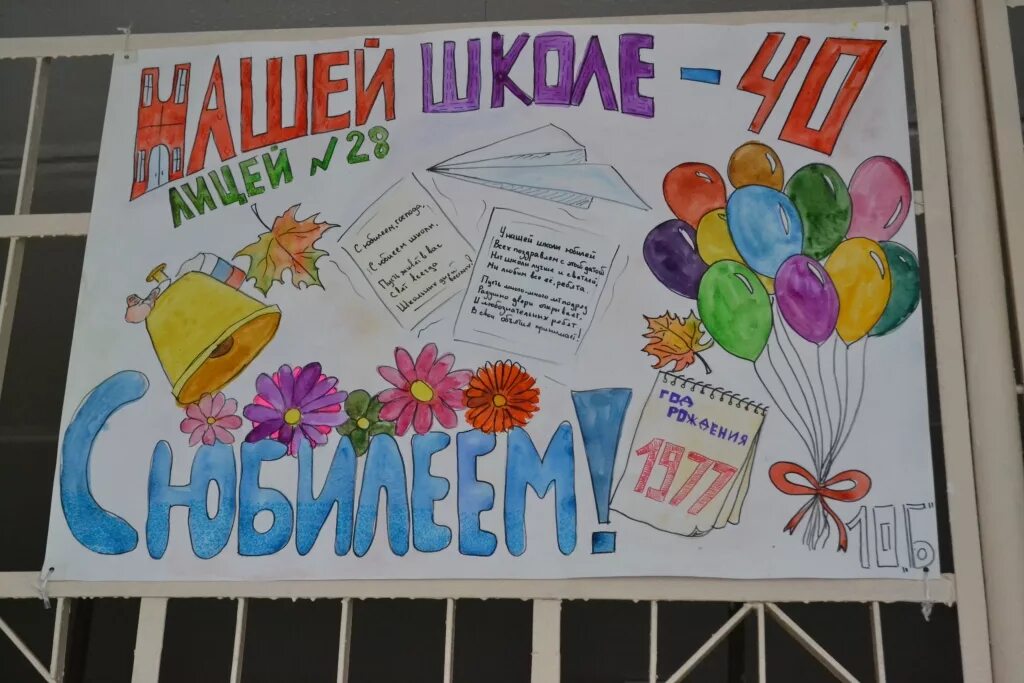 НАШЕЙ ШКОЛЕ - 40
ЛИЦЕЙ №28
С юбилеем, господа,
С юбилеем школы,
Пусть живёт в вас
Свет всегда
Школьных дней весёлых!
У нашей школы юбилей
Всех поздравляем с этой датой
Нет школы лучше и светлей,
Мы любим все её, ребята
Пусть много-много лет подряд
Радушно двери открывает
И любознательных ребят
В свои объятия принимает!
ГОД
РОЖДЕНИЯ
1977
С ЮБИЛЕЕМ!
10„Б"